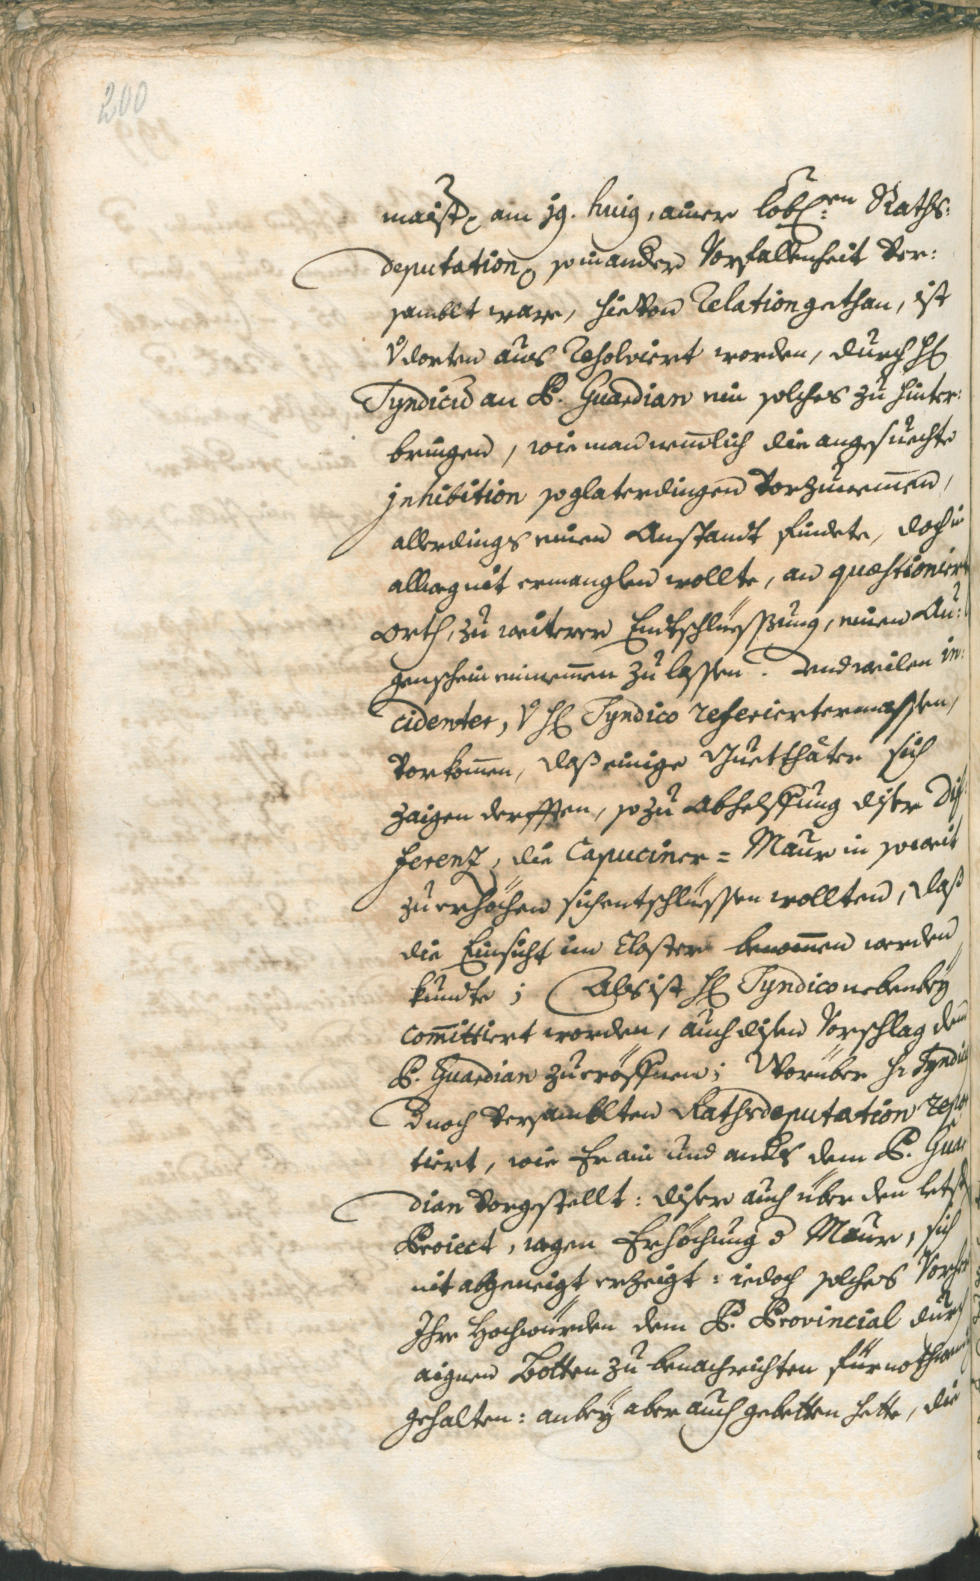 200
maister am 19. huig, ainer lobl:en Raths:
deputation, so in ander Vorfallenheit ver:
samblt ware, hievon Relation gethan, ist
V dorten aus resolviert worden, durch H
Syndicū an P. Guardian ein solches zu hinter:
bringen, wie man nemlich die angesuechte
inhibition so glaterdingen vorzunemen,
allerdings einen Anstandt findete, doch
alleweg nit ermanglen wollte, an quæstioniert
orth, zu weiterer Entschlüessung, einen Au:
genschein einnemen zu lassen. Und weilen in:
cidenter, V H Syndico referiertermassen,
vorkomen, daß einige Guetthäter sich
zaigen derfften, so zu Abhelffung diser Dif
ferenz, die Capuciner = Maur in so weit
zu erhöchen sich entschlüessen wollten, daß
die Einsicht im Closter benommen werden
kundte; Als ist H Syndico nebenbey
committiert worden, auch disen Vorschlag dem
P. Guardian zu eröffnen; Worüber H Syndic
d noch versamblten Rathsdeputation repor
tiert, wie Er ain und anders dem P. Guar
dian vorgestellt: diser auch über den letst
Proiect, wegen Erhöchung d Maur, sich
nit abgeneigt erzeigt: iedoch solches Vorher
Ihro Hochwürden dem P. Provincial durch
aignen Botten zu benachrichten für nothwendig
gehalten: anbey aber auch gebetten hette, die